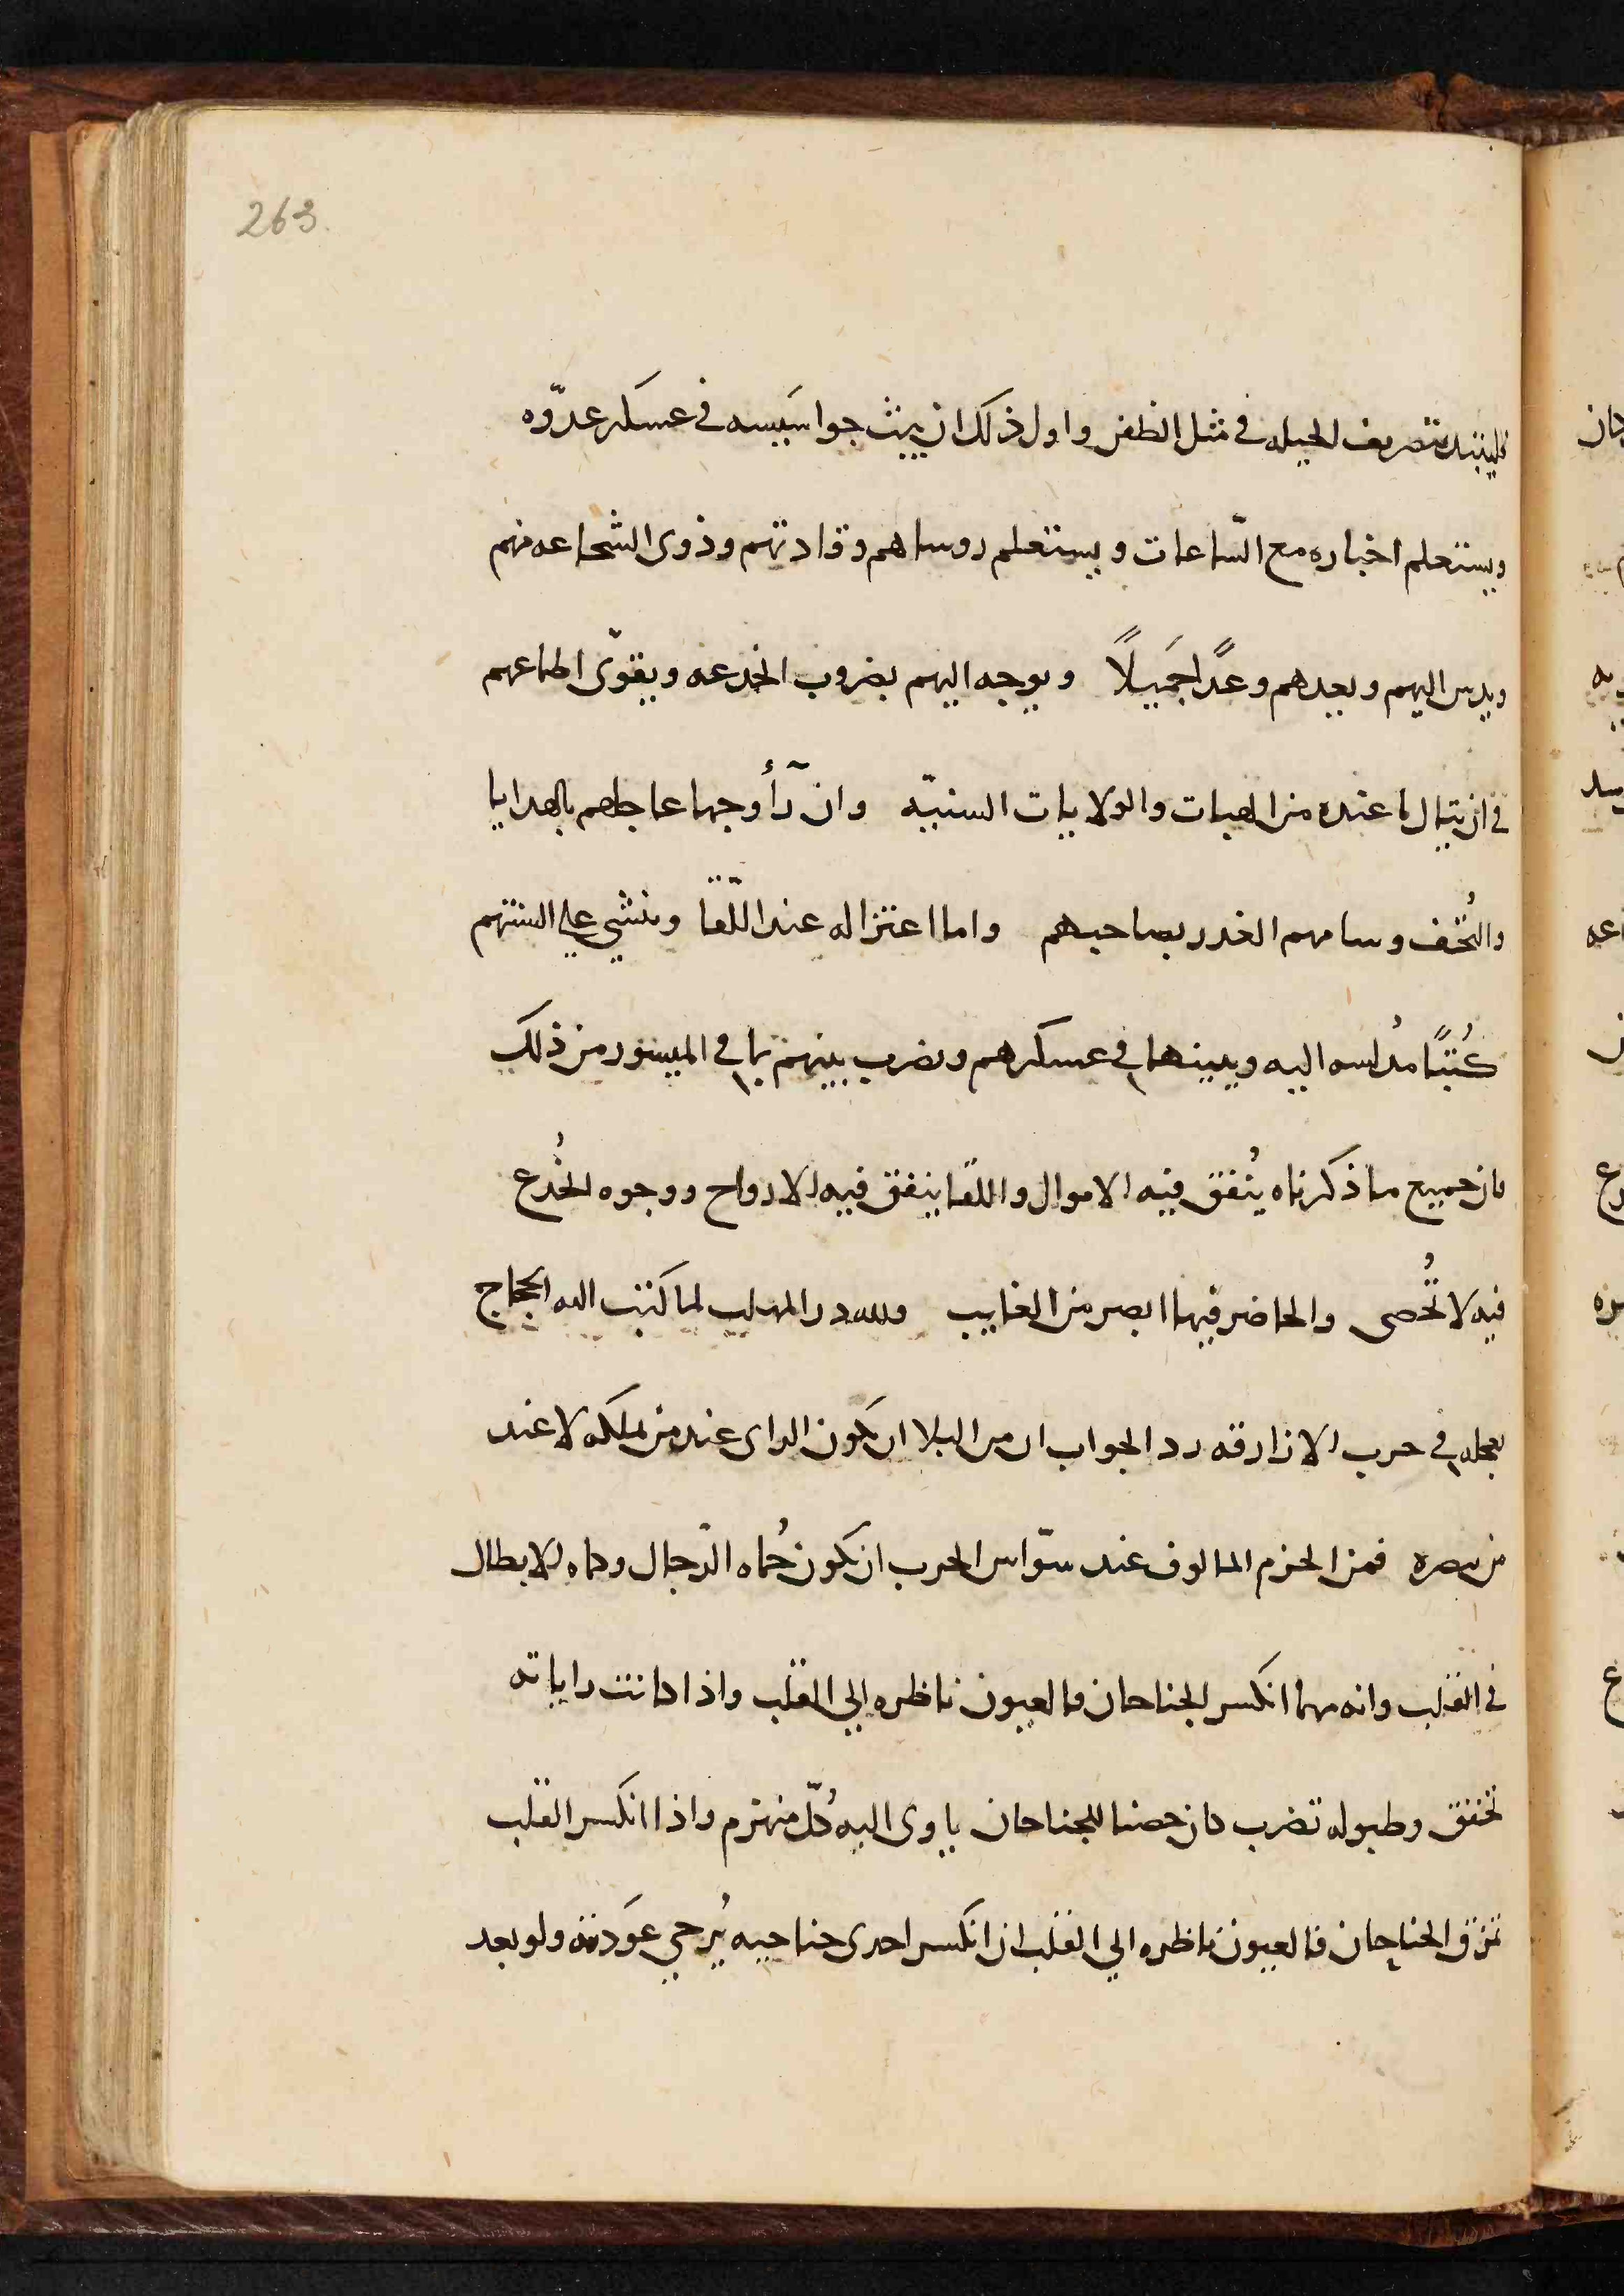 263.
فليبتد بتصريف الحيله في مثل الظفر واول ذلك ان يبث جواسيسه في عسكر عدّوه
ويستعلم اخباره مع السّاعات ويستعلم روساهم وقادتهم وذوى الشجاعه منهم
ويدس اليهم ويعدهم وعدًا جَميلاً ويوجه اليهم بضروب الخدعه ويقوّى اطماعهم
في ان ينال ما عنده من الهبات والولايات السنيّه وان رأوجها عاجلهم بالهدايا
والتُحف وسامهم الغدر بصاحبهم واما اعتزاله عند اللّقا وينشي علي السنتهم
كُتبًا مُدلسه اليه ويبثها في عسكرهم ويضرب بينهم بما في الميسور من ذلك
فان جميع ما ذكرناه يُنفق فيه الاموال واللقا ينفق فيه الارواح ووجوه الخُدع
فيه لا تُحصى والحاضر فيها ابصر من الغايب ولله در المهلب لما كتب اليه الحجاج
يعجله في حرب الازارقه رد الجواب ان من البلا ان يكون الراى عند من يملكه لا عند
من يبصره فمن الحزم المالوف عند سوّاس الحرب ان يكون حُماه الرّجال وكماه الابطال
في القلب وانه مهما انكسر الجناحان فالعيون ناظره الي القلب واذا كانت راياته
تخفق وطبوله تضرب كان حصنا للجناحان ياوى اليه كُلّ منهزم واذا انكسر القلب
تمزق الجناحان فالعيون ناظره الي القلب ان انكسر احدى جناحيه يُرجي عَودته ولو بعد